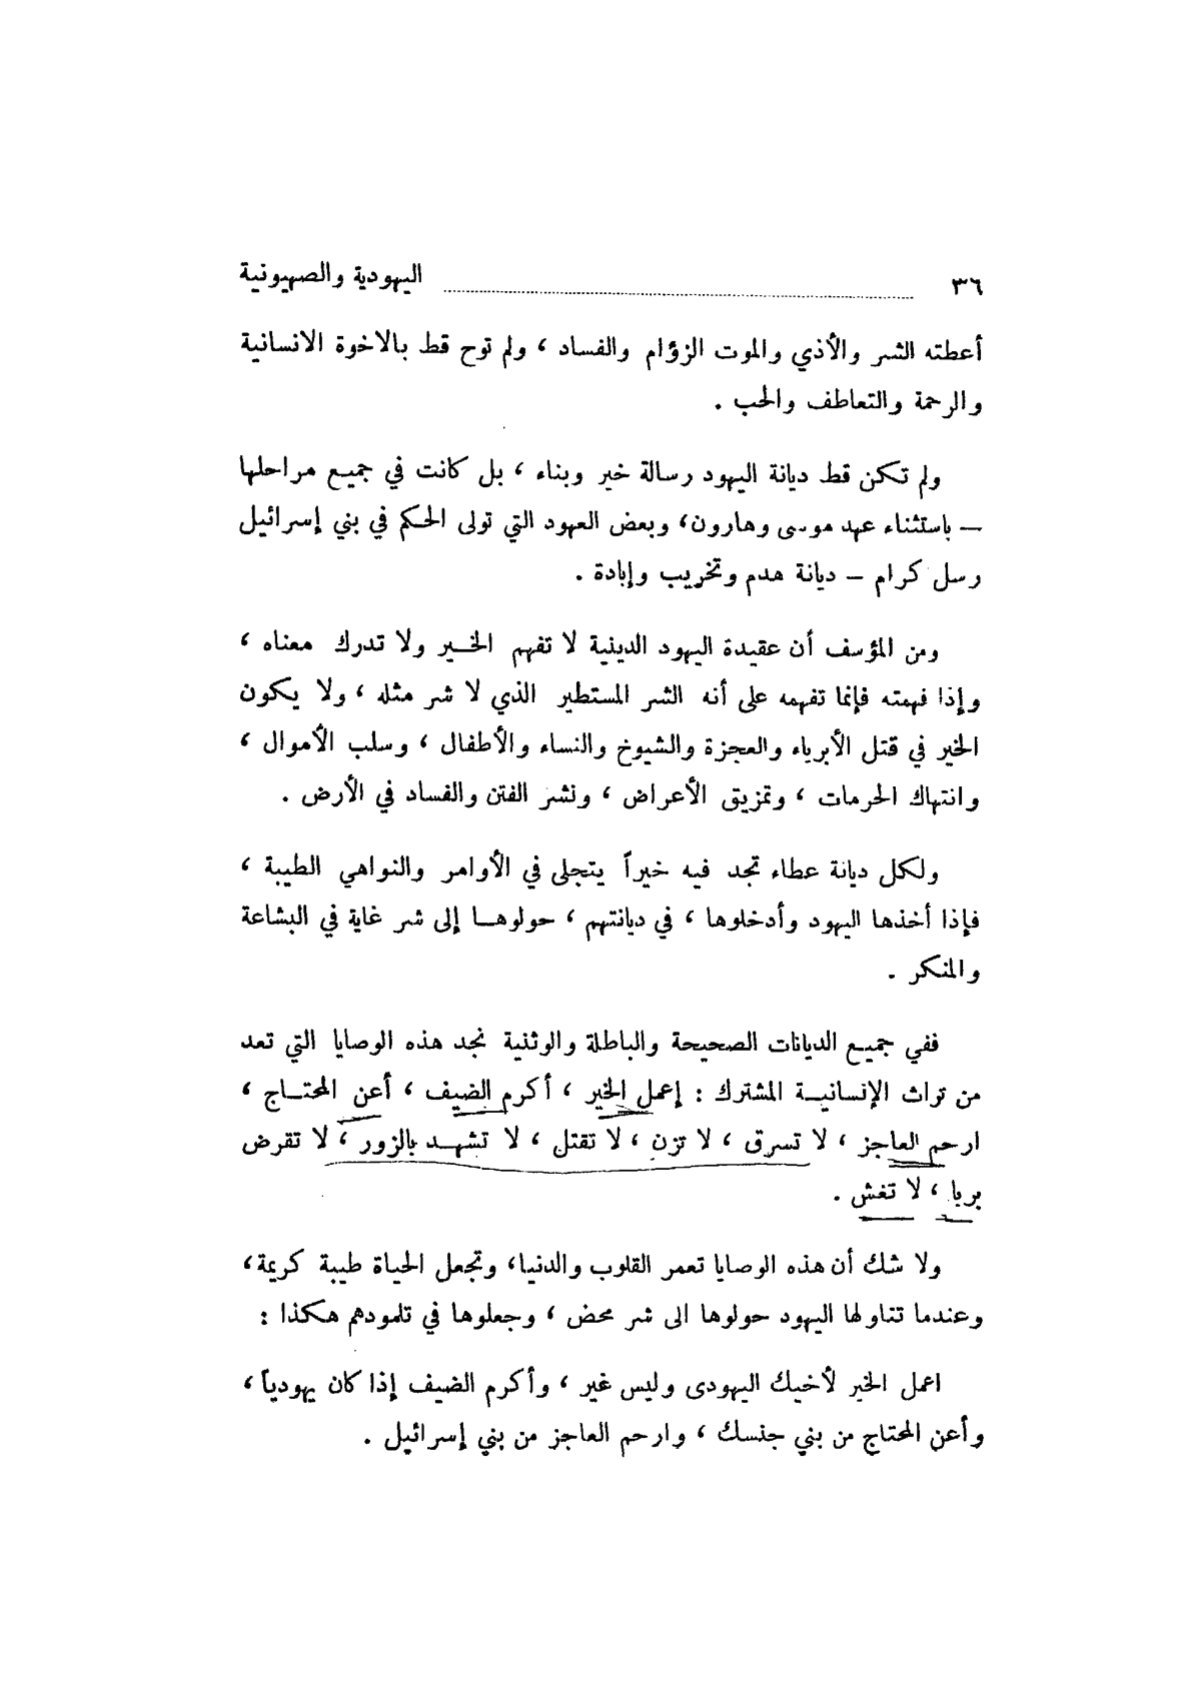 ٣٦ اليهودية والصهيونية
أعطته الشر والأذي والموت الزؤام والفساد ، ولم توح قط بالاخوة الانسانية
والرحمة والتعاطف والحب .
ولم تكن قط ديانة اليهود رسالة خير وبناء ، بل كانت في جميع مراحلها
– باستثناء عهد موسى وهارون، وبعض العهود التي تولى الحكم في بني إسرائيل
رسل كرام – ديانة هدم وتخريب وإبادة .
ومن المؤسف أن عقيدة اليهود الدينية لا تفهم الخير ولا تدرك معناه ،
وإذا فهمته فإنما تفهمه على أنه الشر المستطير الذي لا شر مثله ، ولا يكون
الخير في قتل الأبرياء والعجزة والشيوخ والنساء والأطفال ، وسلب الأموال ،
وانتهاك الحرمات ، وتمزيق الأعراض ، ونشر الفتن والفساد في الأرض .
ولكل ديانة عطاء تجد فيه خيراً يتجلى في الأوامر والنواهي الطيبة ،
فإذا أخذها اليهود وأدخلوها ، في ديانتهم ، حولوها إلى شر غاية في البشاعة
والمنكر .
ففي جميع الديانات الصحيحة والباطلة والوثنية نجد هذه الوصايا التي تعد
من تراث الإنسانية المشترك : إعمل الخير ، أكرم الضيف ، أعن المحتاج ،
ارحم العاجز ، لا تسرق ، لا تزن ، لا تقتل ، لا تشهد بالزور ، لا تقرض
بربا ، لا تغش .
ولا شك أن هذه الوصايا تعمر القلوب والدنيا، وتجعل الحياة طيبة كريمة،
وعندما تناولها اليهود حولوها الى شر محض ، وجعلوها في تلمودهم هكذا :
اعمل الخير لأخيك اليهودى وليس غير ، وأكرم الضيف إذا كان يهودياً ،
وأعن المحتاج من بني جنسك ، وارحم العاجز من بني إسرائيل .